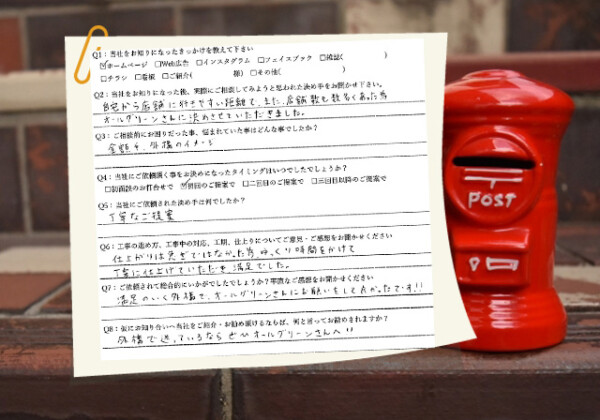 Q1：当社をお知りになったきっかけを教えて下さい
☑ホームページ □Web広告 □インスタグラム □フェイスブック □雑誌( )
□チラシ □看板 □ご紹介( 様) □その他( )
Q2：当社をお知りになった後、実際にご相談してみようと思われた決め手をお聞かせ下さい。
自宅から店舗に行きやすい距離で、また、店舗数も数多くあった為
オールグリーンさんに決めさせていただきました。
Q3：ご相談的にお困りだった事、悩まれていた事はどんな事でしたか？
金額や、外構のイメージ
Q4：当社にご依頼頂く事をお決めになったタイミングはいつでしたでしょうか？
□初面談のお打合せで ☑初回のご提案で □二回目のご提案で □三回目以降のご提案で
Q5：当社にご依頼された決め手は何でしたか？
丁寧なご提案
Q6：工事の進め方、工事中の対応、工期、仕上りについてご意見・ご感想をお聞かせください
仕上がりは急ぎではなかった為ゆっくり時間をかけて
丁寧に仕上げていただき満足でした。
Q7：ご依頼されて総合的にいかがでしたでしょうか？率直なご感想をお聞かせください
満足のいく外構で、オールグリーンさんにお願いをして良かったです!!
Q8：仮にお知り合いへ当社をご紹介・お勧め頂けるならば、何と言ってお勧めされますか？
外構で迷っているならぜひオールグリーンさんへ!!
POST